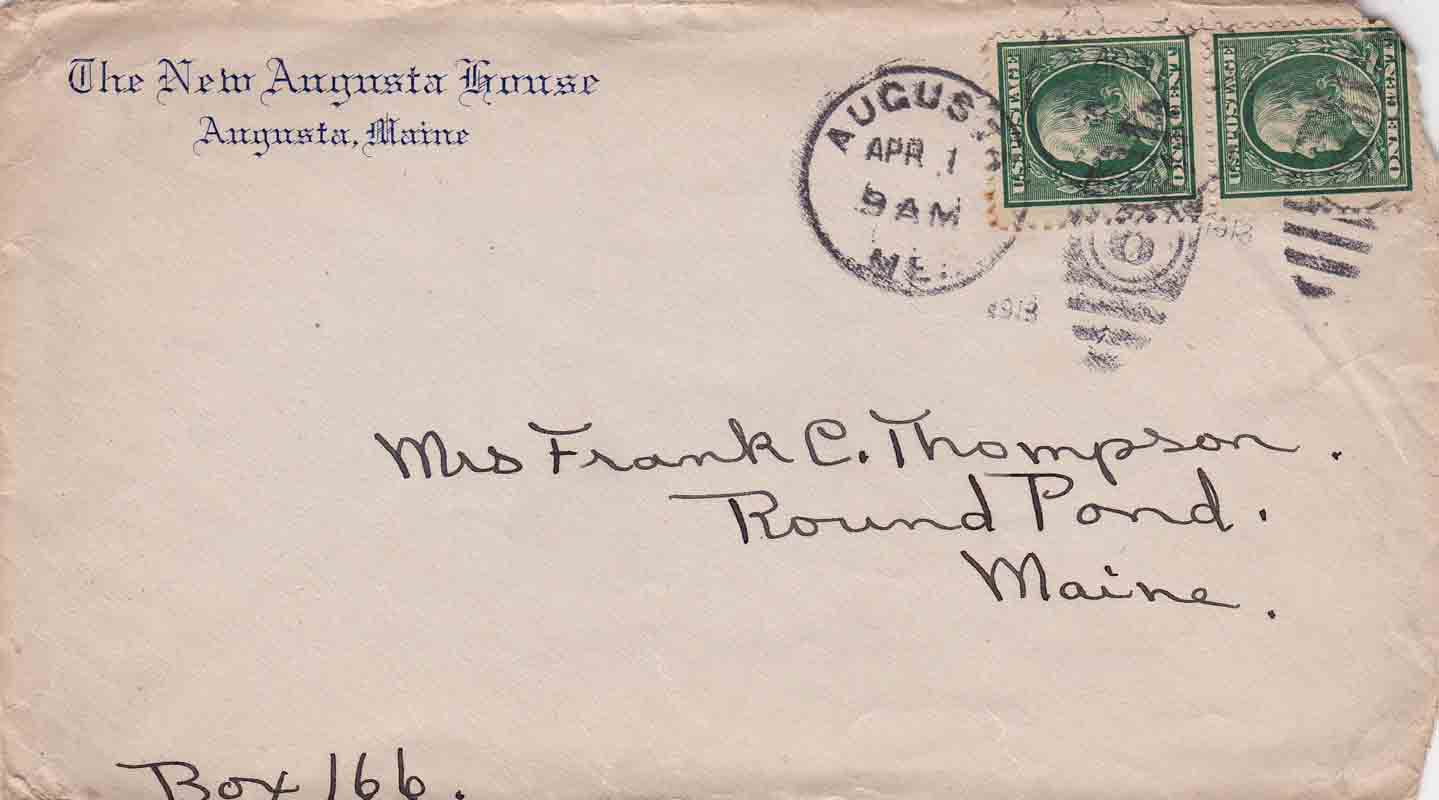 The New Augusta House
Augusta, Maine
AUGUST
APR 1
9 AM
ME.
1913
U.S. POSTAGE
ONE CENT
U.S. POSTAGE
ONE CENT
1913
Mrs Frank C. Thompson.
Round Pond.
Maine.
Box 166.